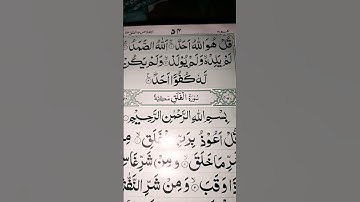 ۵۴
قُلْ هُوَ اللّٰهُ اَحَدٌ ۚ اَللّٰهُ الصَّمَدُ
لَمْ يَلِدْ ۙ وَلَمْ يُوْلَدْ ۙ وَلَمْ يَكُنْ
لَّهٗ كُفُوًا اَحَدٌ
سُوْرَةُ الْفَلَقِ مَكِّيَّةٌ
بِسْمِ اللّٰهِ الرَّحْمٰنِ الرَّحِيْمِ
قُلْ اَعُوْذُ بِرَبِّ الْفَلَقِ
شَرِّ مَا خَلَقَ ۙ وَمِنْ شَرِّ غَاسِقٍ
اِذَا وَقَبَ ۙ وَمِنْ شَرِّ